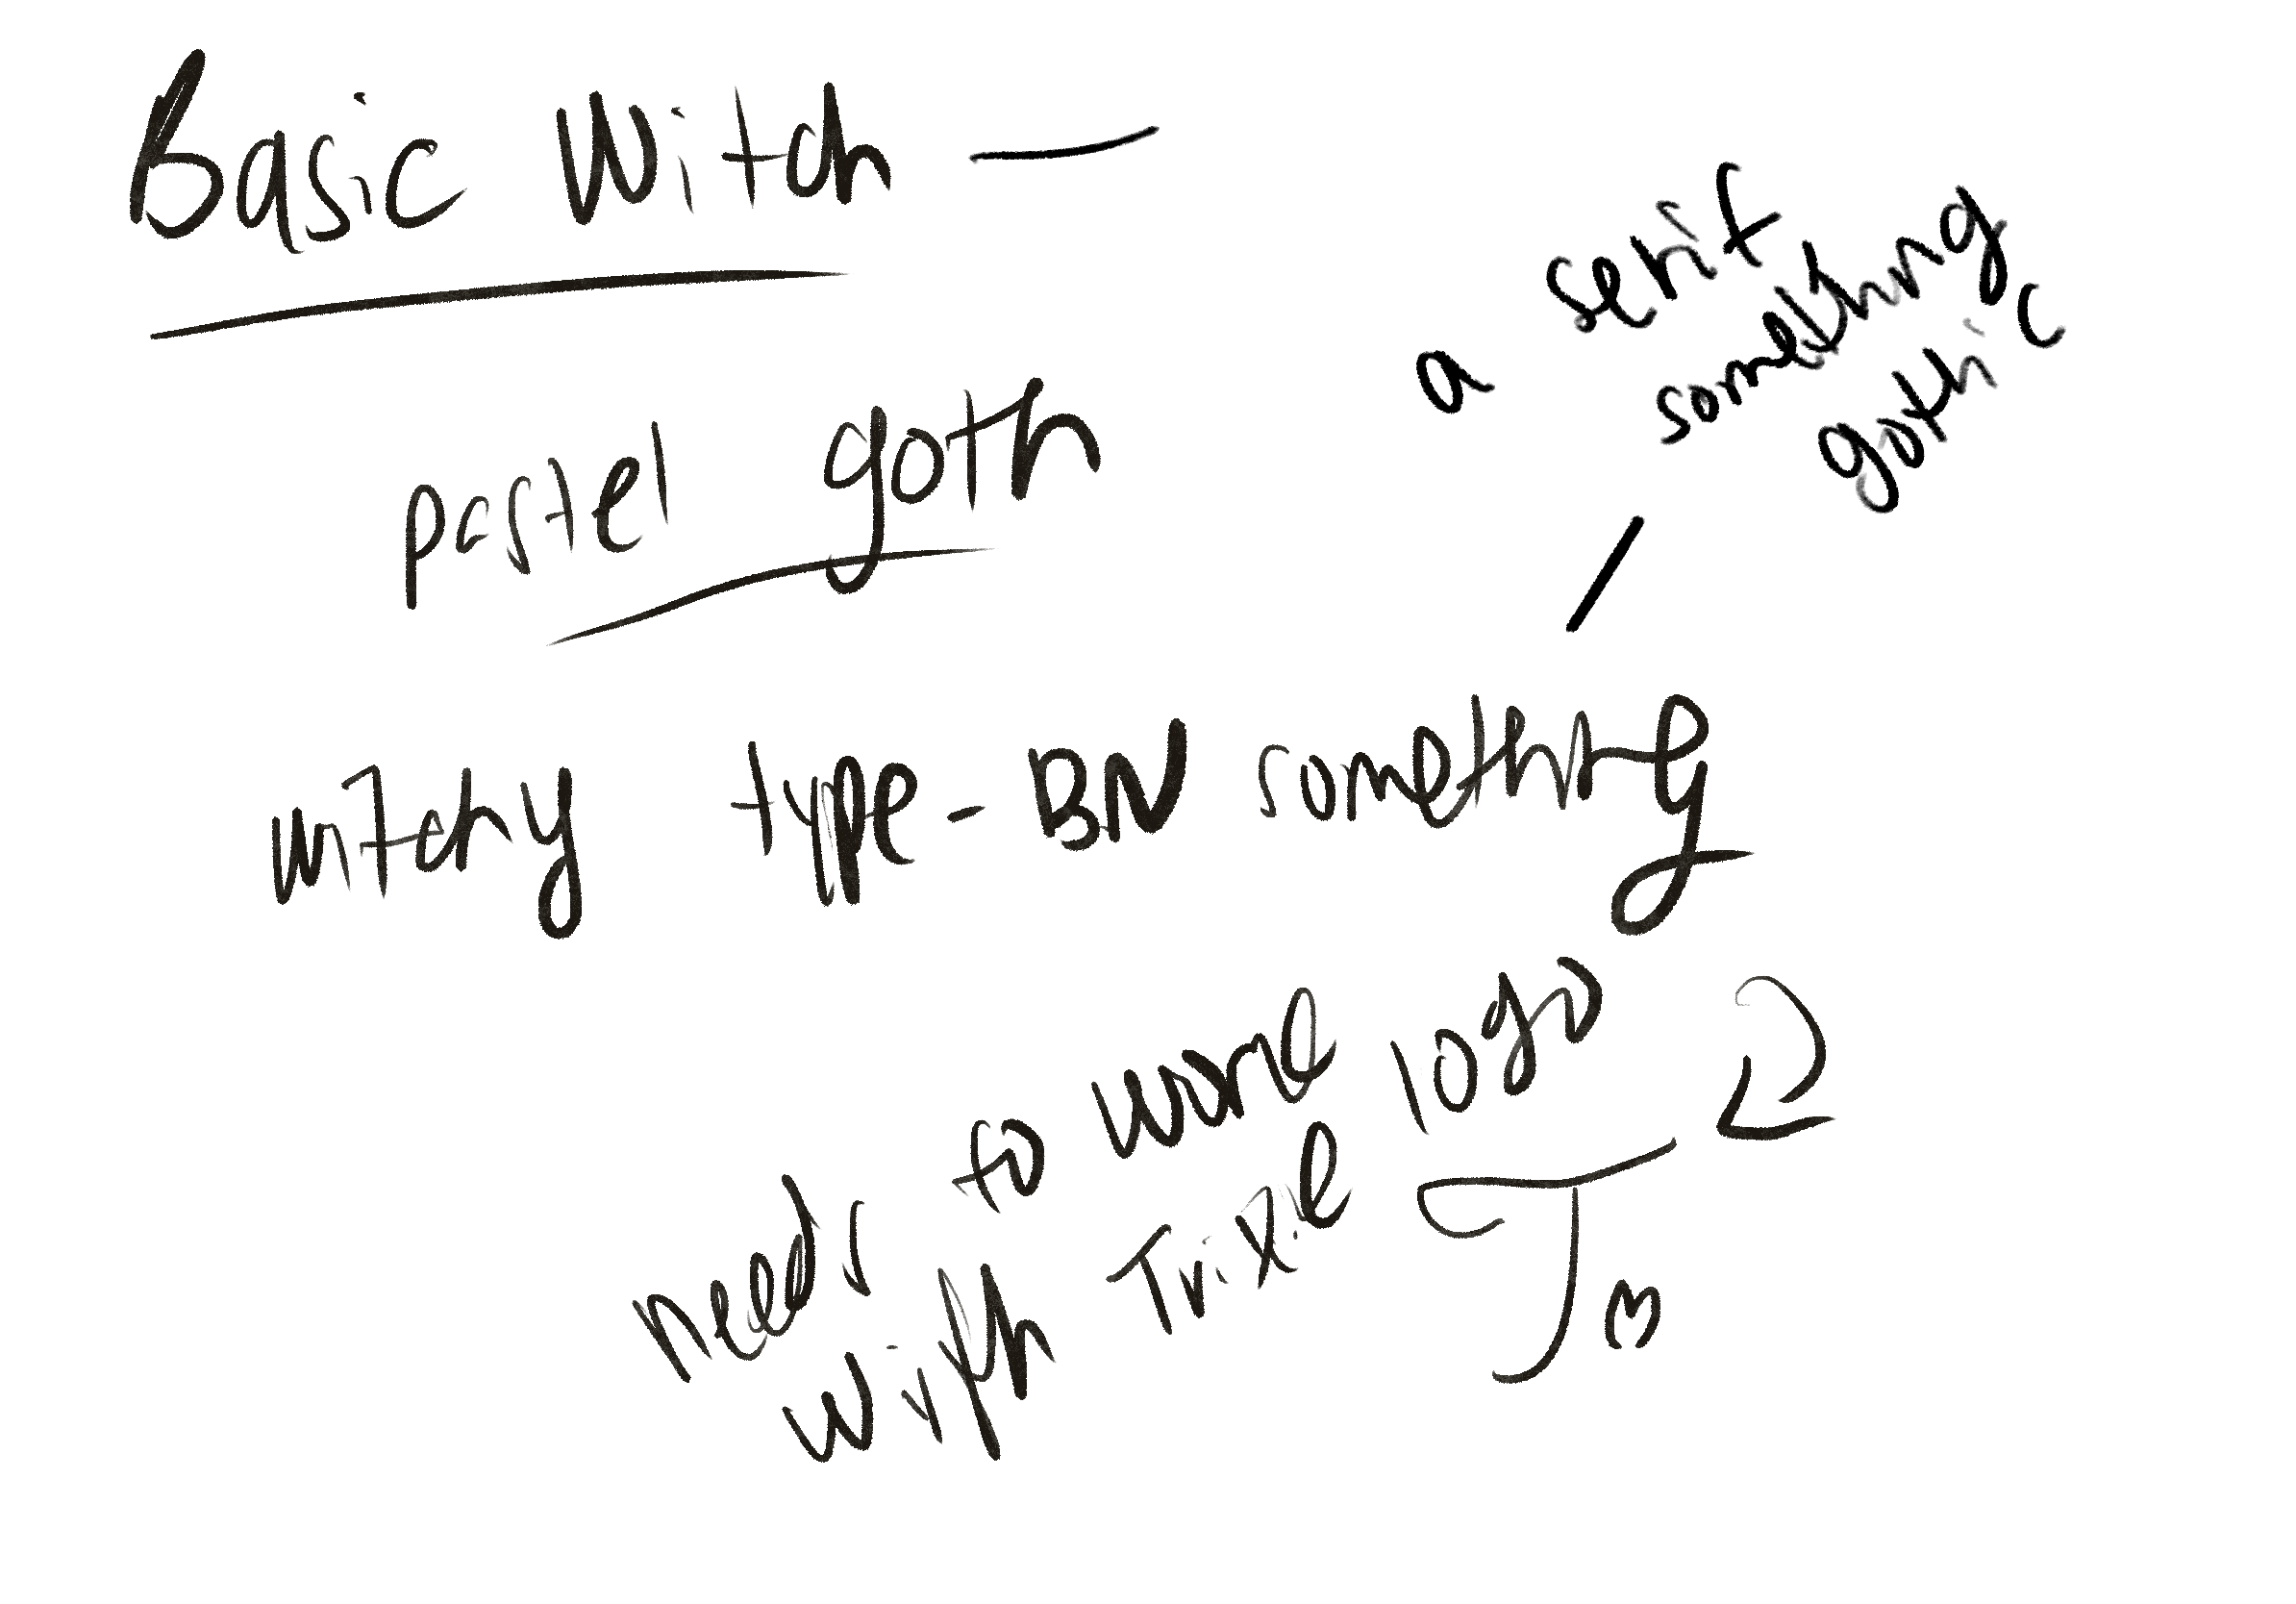 Basic Witch —
a serif
something
gothic
pastel goth
witchy type - BN something
needs to work
with Trixie logo
Tm